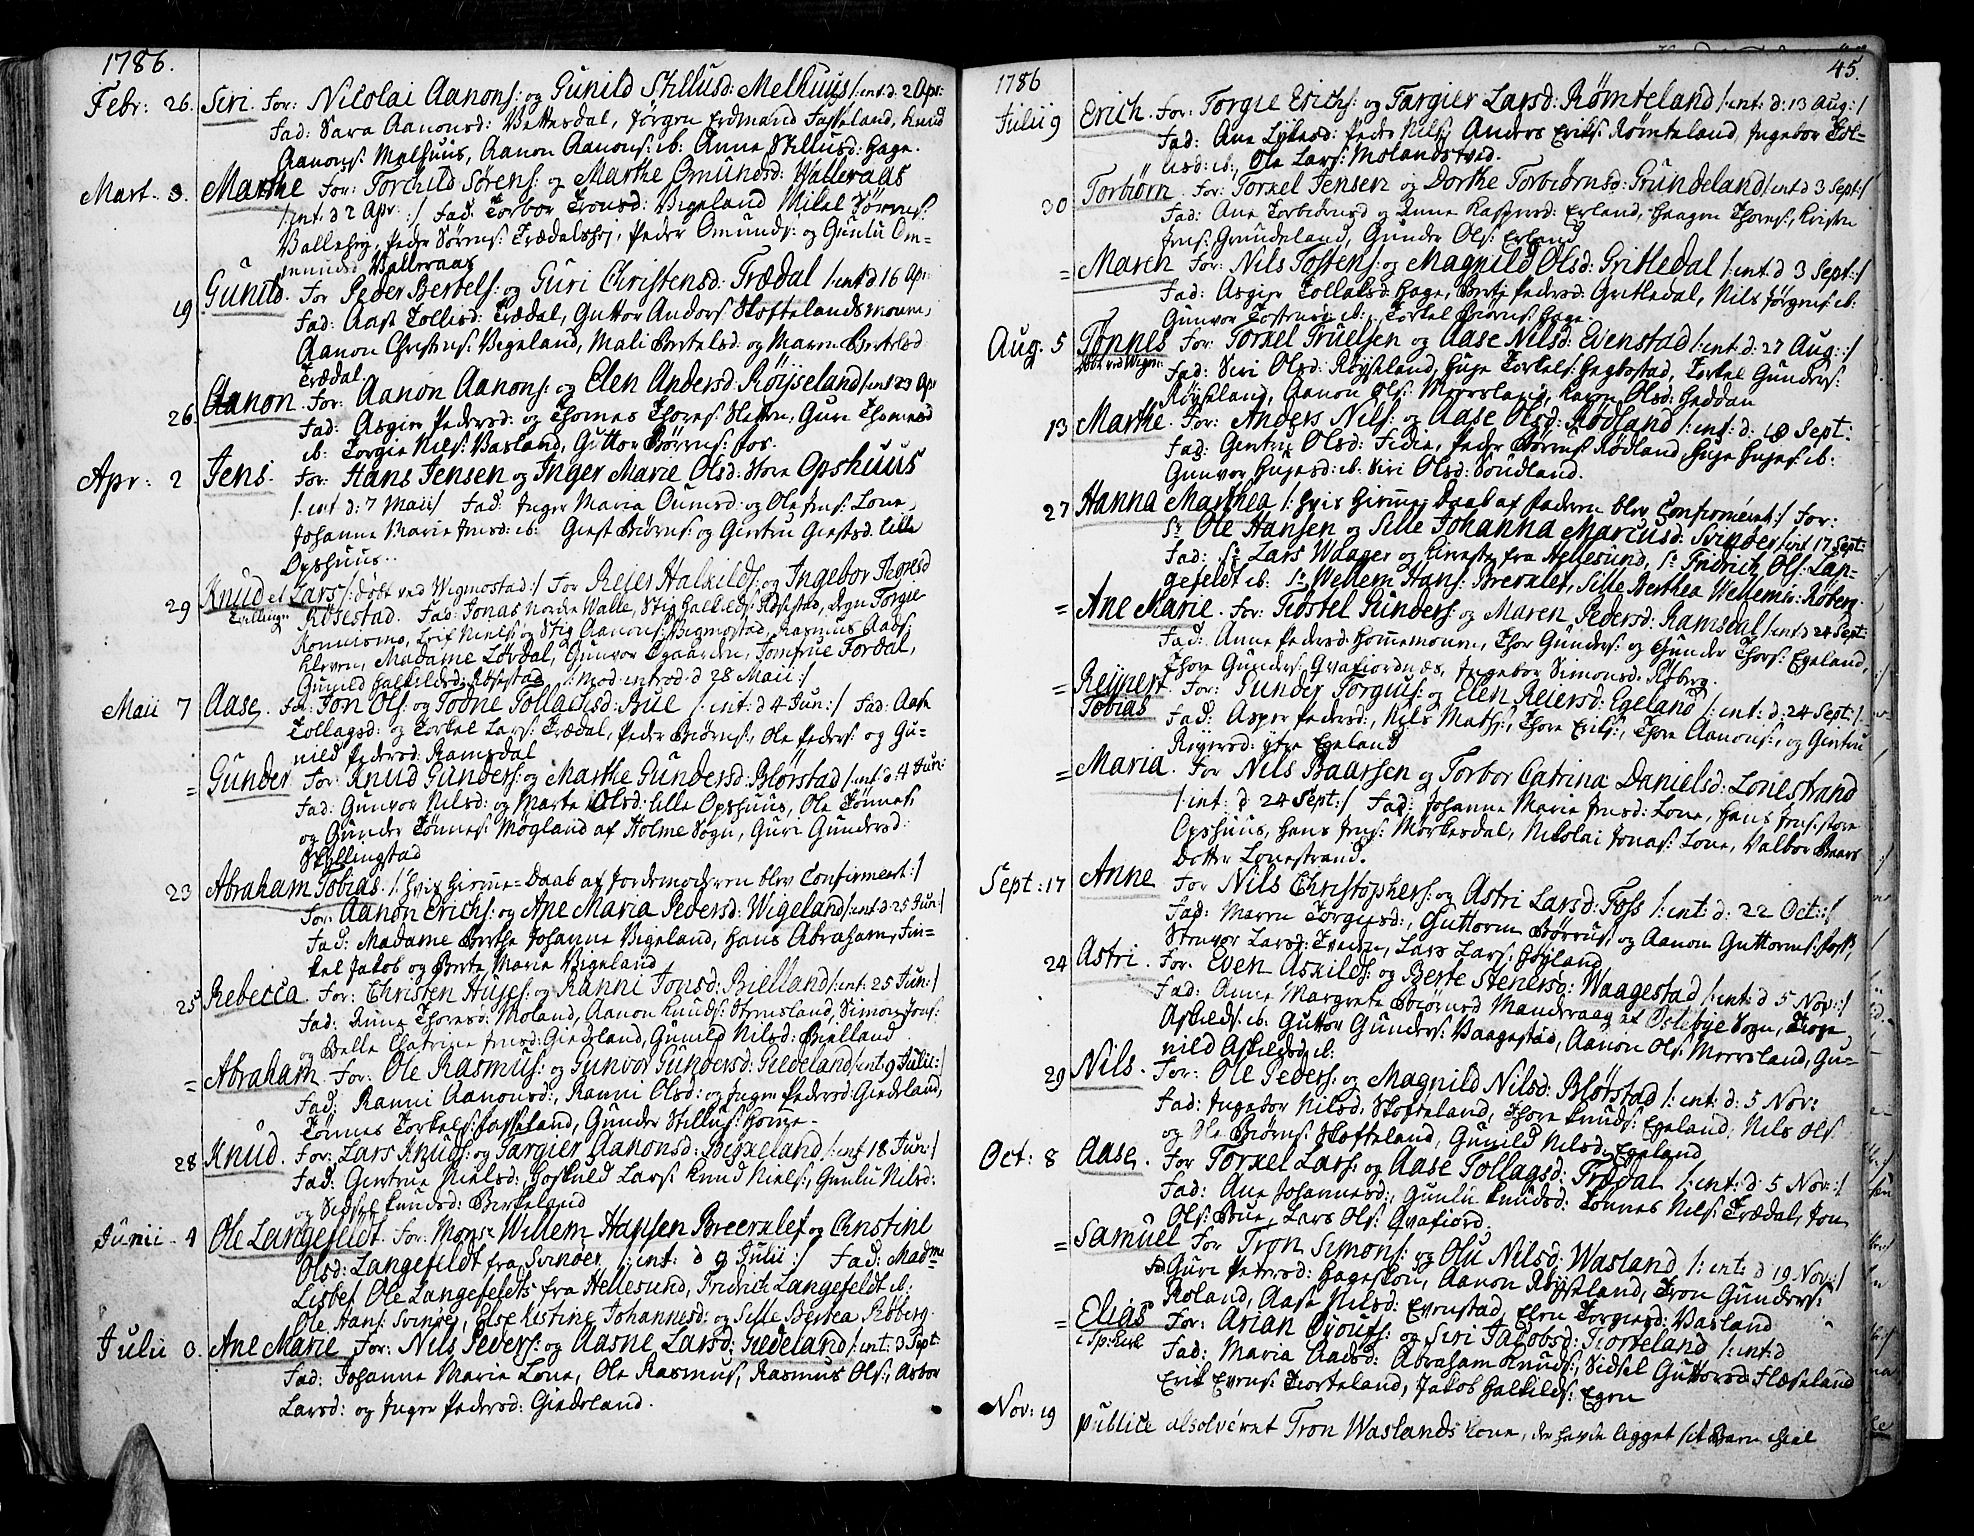 1786.
Febr: 26. Siri. For: Nicolai Aanons: og Gunild Stillusd: Melhuus /: int: d. 2 Apr:
Fad: Sara Aanonsd: Vettesdal, Jørgen Erdmand Fasseland, Knud
Aanons: Melhuus, Aanon Aanons: ib: Anne Stillusd: Hage.
Mart. 3. Marthe For: Torchild Sørens: og Marthe Omundsd: Walleraas
/: int: d 2 Apr: :/ Fad: Torbor Tronsd: Vigeland Mikel Sørens:
Peder Sørens: Peder Omunds: og Gunlu Om=
mundsd Walleraas
19 Gunild. For Peder Bertels: og Guri Christensd: Trædal /: int d 16 Apr:
Fad: Aase Tollisd: Trædal, Guttor Anders: Skoftelandsmoum,
Aanon Christens: Vigeland, Mali Bertelsd: og Maren Bertelsd
Trædal
26. Aanon. For: Aanon Aanons: og Elen Andersd: Røijseland /: int 23 Apr
Fad: Asgier Pedersd: og Thomas Thores: Guri Thomasd
ib: Torgie Nils: Vasland, Guttor Børres: Fos.
Apr: 2 Jens. For: Hans Jensen og Inger Marie Olsd: Store Opshuus
/: int d: 7 Maii/ Fad: Inger Maria Oumsd: og Ole Jens: Lone,
Johanne Marie Jensd: ib: Giest Biørns: og Giertru Giestsd: lille
Opshuus..
29 Knud et Lars /: døbt ved Wigmostad :/ For Reier Halkilds: og Ingebor Tegesd
Tvillinger Røsestad. Fad: Jonas Nordre Walle, Stig Halkilds: Røsestad, Degn Torgie
Leif Niels: og Stig Aanons: Vigmostad, Rasmus Aads:
Kleven, Madame Lørdal, Gunvor Jomfrue Fordal,
Gunild Halkildsd: Røsestad /: Mod: introd: d 28 Maii :/
Maii 7 Aase. For: Jon Ols: og Todne Tollachsd: Bue /: int: d 4 Jun: :/ Fad: Aase
Tollagsd: og Torkel Lars: Trædal, Peder Biørns:, Ole Peders: og Gu=
nild Pedersd: Ramsdal
= Gunder For: Knud Gunders: og Marthe Gundersd: Blørstad /: int: d. 4 Jun:
Fad: Gunvor Nilsd: og Marte Olsd: lille Opshuus, Ole Tønnes:
og Gunder Tønnes: Møgland af Holme Sogn, Guri Gundersd:
Skillingstad
23 Abraham Tobias /: hvis Hieme=Daab af Jordemoderen blev Confirmeert :/
For: Aanon Erichs: og Ane Maria Pedersd: Wigeland /: int: d 25 Jun: :/
Fad: Madame Berthe Johanne Vigeland, Hans Abraham, Fin=
kel Jakob og Berte Maria Vigeland
25 Rebecca. For: Christen Hujes: og Ranni Jonsd: Bielland /: int: 25 Jun: :/
Fad: Rune Thoresd: Moland, Aanon Knuds: Stemsland, Simon Jons:
og Belle Chatrine Jensd: Giedeland, Gunild Nilsd: Bielland
= Abraham For: Ole Rasmus: og Gunvor Gundersd: Giedeland /: int 9 Julii: :/
Fad: Ranni Aanonsd:, Ranni Olsd: og Inger Pedersd: Giedeland,
Tønnes Torkels: Fasseland, Gunder Stillus: Homme.
28 Knud. For: Lars Knuds: og Targier Aanonsd: Birkeland /: int 18 Jun: :/
Fad: Giertrue Nielsd:, Hoskuld Lars: Knud Niels:, Gunlu Nilsd:
og Sidsel Knudsd: Birkeland
Junii 4 Ole Langefeldt. For: Mons: Willem Hansen Breerslef og Christine
Olsd: Langefeldt fra Svinøer /: int: d 9 Julii :/ Fad: Madme
Lisbet Ole Langefeldts fra Hellesund, Fridrich Langefeldt ib:
Ole Hans: Svinøer, Else Kistine Johannesd: og Sille Bertea Røberg.
Julii 3. Ane Marie For: Nils Peders: og Aasne Larsd: Giedeland /: int: 3 Sept:
Fad: Johanne Marie Lone, Ole Rasmus:, Rasmus Ols:, Asbor
Larsd: og Inger Pedersd: Giedeland.
45.
1786
Julii 9 Erich. For: Torgie Erichs: og Targier Larsd: Rømteland /: int: d: 13 Aug: /
Fad: Ane Peder Nils:, Anders Eriks: Rømteland, Ingebor Tol=
lisd: ib:, Ole Lars: Molandsved.
30 Torbiørn. For: Torkel Jensen og Dorthe Torbiørnsd: Grundeland /: int d 3 Sept: /
Fad: Ane Torbiørnsd og Anne Kaspersd: Erland, Haagen Thores:, Kristen
Jens: Grundeland, Gunder Ols: Erland
= Maren For: Nils Tostens: og Magnild Olsd: Gritledal /: int: d 3 Sept: /
Fad: Asgier Tollaksd: Hage, Berte Pedersd: Gritledal, Nils Jørgens: ib:
Gunvor Tostensd ib:, Torkel Biørns: Hage.
Aug. 5 Tønnes For: Torkel Truelsen og Aase Nilsd: Evenstad /: int: d: 27 Aug: :/
døbt ved Wigm: Fad: Siri Olsd: Røijseland, Huje Torkels: Hegbostad, Torkel Gunders:
Røijseland, Aanon Ols: Moresland, Karen Olsd: Heddan
13 Marthe. For: Anders Nils: og Aase Olsd: Rødland /: int: d: 10 Sept:
Fad: Giertru Olsd: Fidie, Peder Børres: Rødland, Huje Hujes: ib:
Gunvor Hujesd: ib: Siri Olsd: Soudland.
27 Hanna Marthea /: hvis Hieme Daab af Faderen blev Confirmeret :/ For:
Sr Ole Hansen og Sille Johanna Marcusd: Svinøer /: int 17 Sept:
Fad: Sr Lars Waager og Kierreste fra Hellesund, Sr Fridrich Ols: Lan=
gefeldt ib: Sr Willem Hans: Breerslef, Sille Berthea Willems: Røberg.
= Ane Marie. For: Tostel Gunders: og Maren Pedersd: Ramsdal /: int: d 24 Sept:
Fad: Anne Pedersd: Hommemoum, Thor Gunders: og Gunder Thors: Egeland,
Thore Gunders: Qvafiordnæs, Ingebor Simonsd: Røberg.
= Reijnert For: Gunder Torgius: og Elen Reiersd: Egeland /: int: d: 24 Sept: /
Tobias Fad: Asper Pedersd:, Nils Maths:, Thore Eriks:, Thore Aanons:, og Giertru
Reijersd: ytre Egeland
= Maria. For Nils Baarsen og Torbor Catrina Danielsd: Lonestrand
/: int: d 24 Sept: / Fad: Johanne Marie Jensd: Lone, Hans Jens: store
Opshuus, Hans Jens: Mørkesdal, Nikolai Jonas: Lone, Valbor Baars
Dotter Lonestrand.
Sept: 17 Anne For Nils Christophers: og Astri Larsd: Foss /: int: d: 22 Oct: :/
Fad: Maren Torgiesd:, Guttorm Børrus:, og Aanon Guttorms: Foss,
Stenvor Larsd: Lars Lars: Høijland
24 Astri. For: Even Askilds: og Berte Stenersd: Waagestad /: int: d 5 Nov: /
Fad: Anne Margrete Biørnsd Manderaag af Osleby Sogn,
Askilds: ib: Guttor Gunders: Vaagestad, Aanon Ols: Moresland, Gu=
nild Askildsd ib:
29 Nils. For: Ole Peders: og Magnild Nilsd: Blørstad /: int: d: 5 Nov:
Fad: Ingebor Nilsd: Skofteland, Thore Knuds: Egeland, Nils Ols:
og Ole Biørns: Skofteland, Gunild Nilsd: Egeland
Oct: 8 Aase. For Torkel Lars: og Aase Tollagsd: Trædal /: int: d: 5 Nov: /
Fad: Ane Johannesd:, Gunlu Knudsd: Tønnes Nils: Trædal, Jon
Ols: Bue, Lars Ols: Qvafiord.
= Samuel For Tron Simons: og Olu Nilsd: Wasland /: int: d 19 Nov: :/
Fad Guri Pedersd: Aanon Røijseland, Tron Gunders:
Roland, Aase Nilsd: Evenstad, Elen Torgiesd: Vasland
= Elias For: Arian Ojoufs: og Siri Jacobsd: Tiorteland /: int: d
i Sp: Kirk Fad: Maria Aadsd: Abraham Knuds:, Sidsel Guttorsd: Flæseland
Erik Evens: Tiorteland, Jakob Halkilds: Egen
Nov: 19 publice absolveret Tron Waslands Kone, der havde ligget sit Barn ihiel